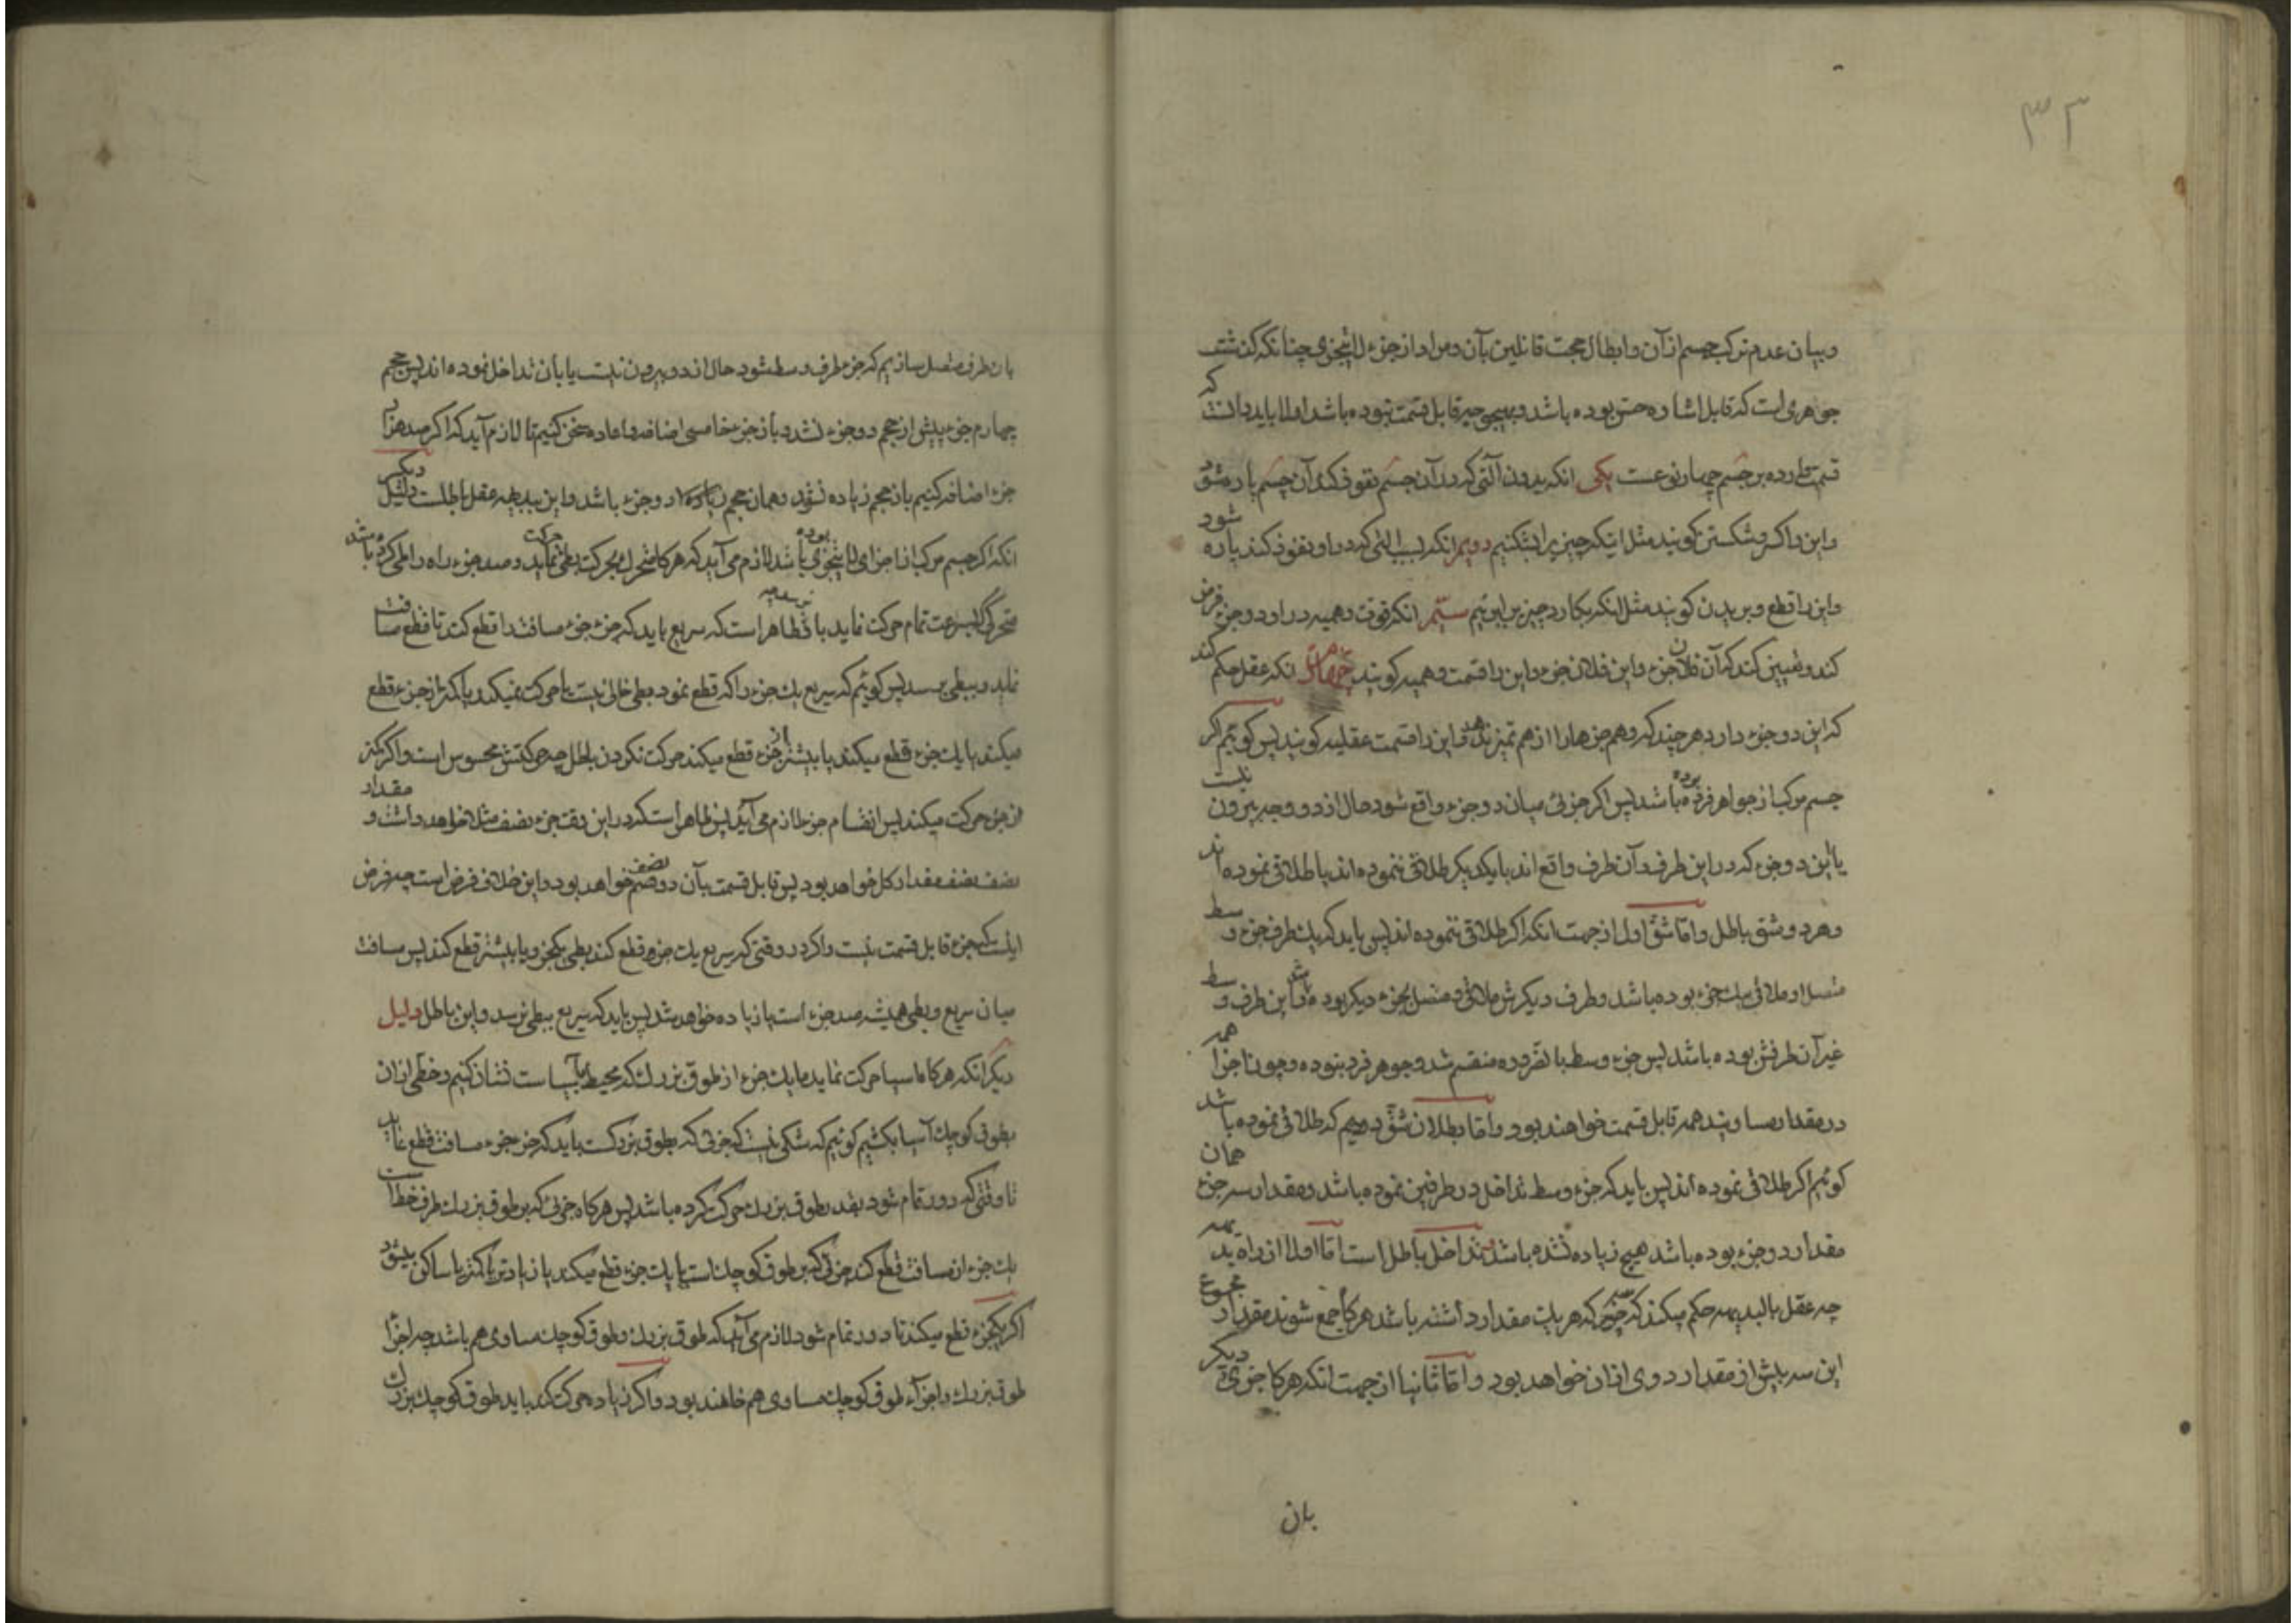 ۳۲
و بیان عدم ترکب جسم از آن و ابطال حجت قائلین بآن و مراد از جزء لایتجزی چنانکه گذشت
جوهری است که قابل اشاره حسی بوده باشد و بهیچوجه قابل قسمت نبوده باشد اولا باید دانست که
قسمت وارده بر جسم چهار نوعست یکی انکه بدون آلتی که در آن جسم نفوذ کند آن جسم پاره شود
و این را کسر و شکستن کویند مثل اینکه چیزیرا بشکنیم دویم انکه بسبب التی که در او نفوذ کند پاره شود
و این را قطع و بریدن کویند مثل انکه بکارد چیزیرا ببریم سیم انکه قوت وهمیه در او دو جزء فرض
کند و تعیین کند که آن فلان جزء و این فلان جزء و این را قسمت وهمیه کویند چهارم انکه عقل حکم کند
که این دو جزء دارد هر چند که وهم جزءها را از هم تمیز ندهد و این را قسمت عقلیه کویند پس کوئیم اکر
جسم مرکب از جواهر فرده بوده باشد پس اکر جزئی میان دو جزء واقع شود حال از دو وجه بیرون نیست
یا این دو جزء که در این طرف و آن طرف واقع اند با یکدیکر طلاقی ننموده اند یا طلاقی نموده اند
و هر دو شق باطل و اما شق اول از جهت انکه اکر طلاقی ننموده اند پس باید که یک طرف جزء وسط
متصل او ملاقی بیک جزء بوده باشد و طرف دیکرش ملاقی و متصل بجزء دیکر بوده باشد و این طرف وسط
غیر آن طرفش بوده باشد پس جزء وسط بالضروده منقسم شد و جوهر فرد نبوده و چون اجزا همه
در مقدار مساویند همه قابل قسمت خواهند بود و اما بطلان شق دویم که طلاقی نموده باشد
کوئیم اکر طلاقی نموده اند پس باید که جزء وسط تداخل در طرفین نموده باشد و مقدار سه جزء همان
مقدار دو جزء بوده باشد هیچ زیاده نشده باشد و تداخل باطل است اما اولا از راه بدیهه
چه عقل بالبدیهه حکم میکند که سه چیز که هر یک مقدار داشته باشد هرکاه جمع شوند مقدار مجموع
این سه بیش از مقدار دوی از ان خواهد بود و اما ثانیا از جهت انکه هرکاه جزوی دیکر
بان
بان طرف متصل سازیم که جزء طرف وسط شود حال از دو بیرون نیست یا بان تداخل نموده اند پس حجم
چهارم جزء بیش از حجم دو جزء نشد و باز جزء خامسی اضافه و اعاده سخن کنیم تا لازم آید که اکر صد هزار
جزء اضافه کنیم باز حجم زیاده نشود و همان حجم دو جزء باشد و این ببدیهه عقل باطلست دلیل دیکر
انکه اکر جسم مرکب از اجزای لایتجزی بوده باشد لازم می آید که هرکاه متحرک بحرکت بطی حرکت نماید و صد جزء راه را طی کرده باشد
متحرکی بسرعت تمام حرکت نماید باو نرسد چه ظاهر است که سریع باید که جزء جزء مسافت را قطع کند تا قطع مسافت
نماید و ببطی برسد پس کوئیم که سریع یک جزء را که قطع نمود بطی خالی نیست یا حرکت نمیکند یا کمتر از جزء قطع
میکند یا یک جزء قطع میکند یا بیشتر از جزء قطع میکند حرکت نکردن باطل چه حرکتش محسوس است و اکر کمتر
از جزء حرکت میکند پس انقسام جزء لازم می آید پس ظاهر است که در این وقت جزء نصف مثلا خواهد داشت و مقدار
نصف نصف مقدار کل خواهد بود پس قابل قسمت بآن دو نصف خواهد بود و این خلاف فرض است چه فرض
اینست که جزء قابل قسمت نیست و اکر در وقتی که سریع یک جزء قطع کند بطی یکجزء و یا بیشتر قطع کند پس مسافت
میان سریع و بطی همیشه صد جزء است یا زیاده خواهد شد پس باید که سریع ببطی نرسد و این باطل دلیل
دیکر انکه هرکاه اسیا حرکت نماید ما یک جزء از طوق بزرک که محیط بآسیاست نشان کنیم و خطی از ان
بطوق کوچک آسیا بکشیم کوئیم که شکی نیست که جزئی که بطوق بزرکست باید که جزء جزء مسافت قطع نماید
تا وقتی که دور تمام شود بقدر طوق بزرک حرکت کرده باشد پس هرکاه جزئی که بر طوق بزرک طرف خط است
یک جزء از مسافت قطع کند جزئی که بر طوق کوچک است یا یک جزء قطع میکند یا زیادتر یا کمتر یا ساکن میشود
اکر یکجزء قطع میکند تا دور تمام شود لازم می آید که طوق بزرک و طوق کوچک مساوی هم باشد چه اجزاء
طوق بزرک و اجزاء طوق کوچک مساوی هم خاهند بود و اکر زیاده حرکت کند باید طوق کوچک بزرک